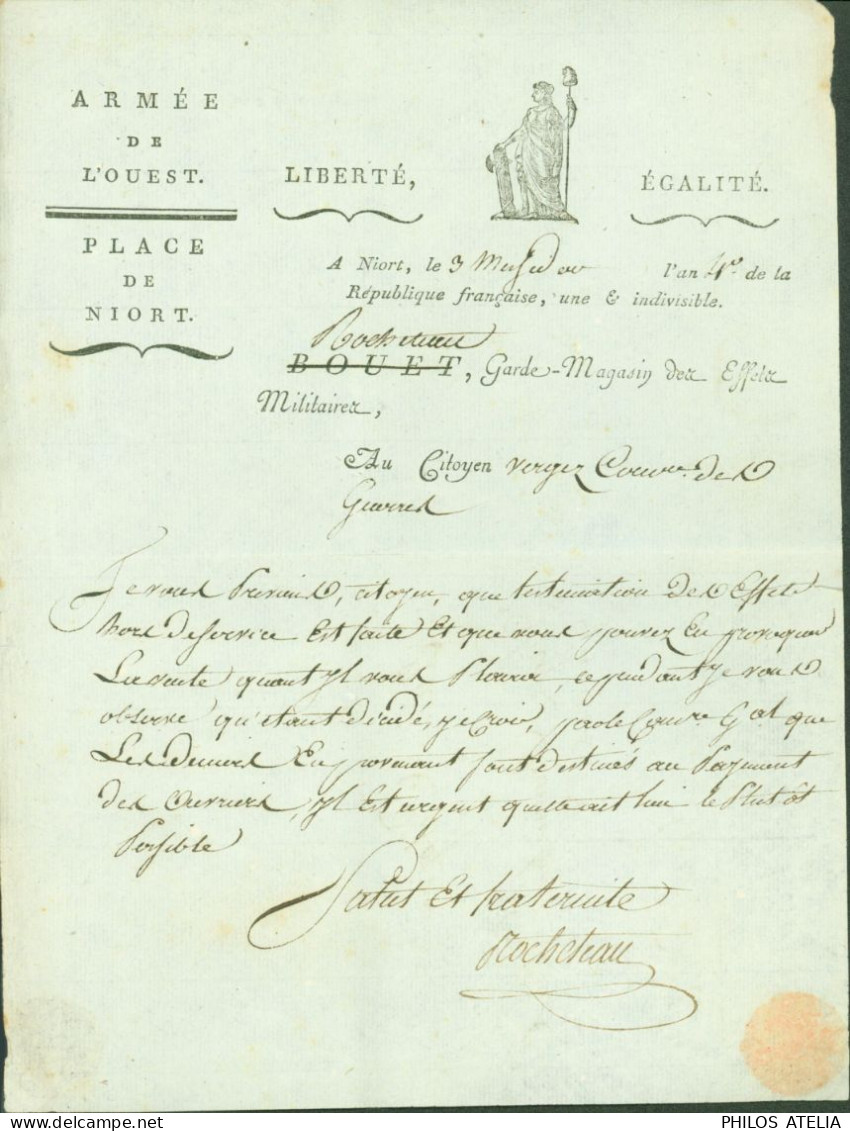 ARMÉE
DE
L'OUEST.
PLACE
DE
NIORT.
LIBERTÉ,
ÉGALITÉ.
A Niort, le 3 Messidor l'an 4e. de la
République française, une & indivisible.
Rocheteau
BOUET, Garde-Magasin des Effets
Militaires,
Au Citoyen Vergez Commre. des
Guerres
Je vous Previens, citoyen, que l'estimation des Effets
hors de service Est faite Et que vous pouvez En provoquer
La vente quant yl vous Plaira, cependant je vous
observe qu'étant décidé, je Crois, par le Commre. Gal que
Les deniers En provenant sont destinés au Payment
des ouvriers, yl Est urgent quelle ait lieu le Plutôt
Possible
Salut Et fraternité
Rocheteau
PHILOS ATELIA